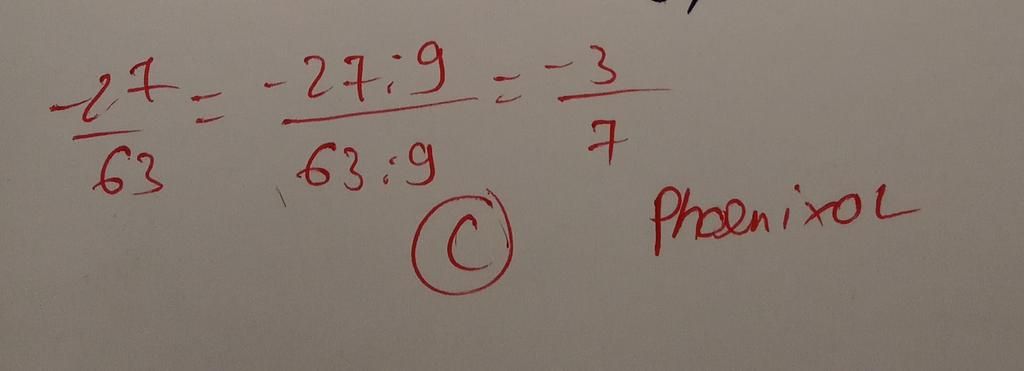 -27/63 = -27:9/63:9 = -3/7
C
PhoenixOL